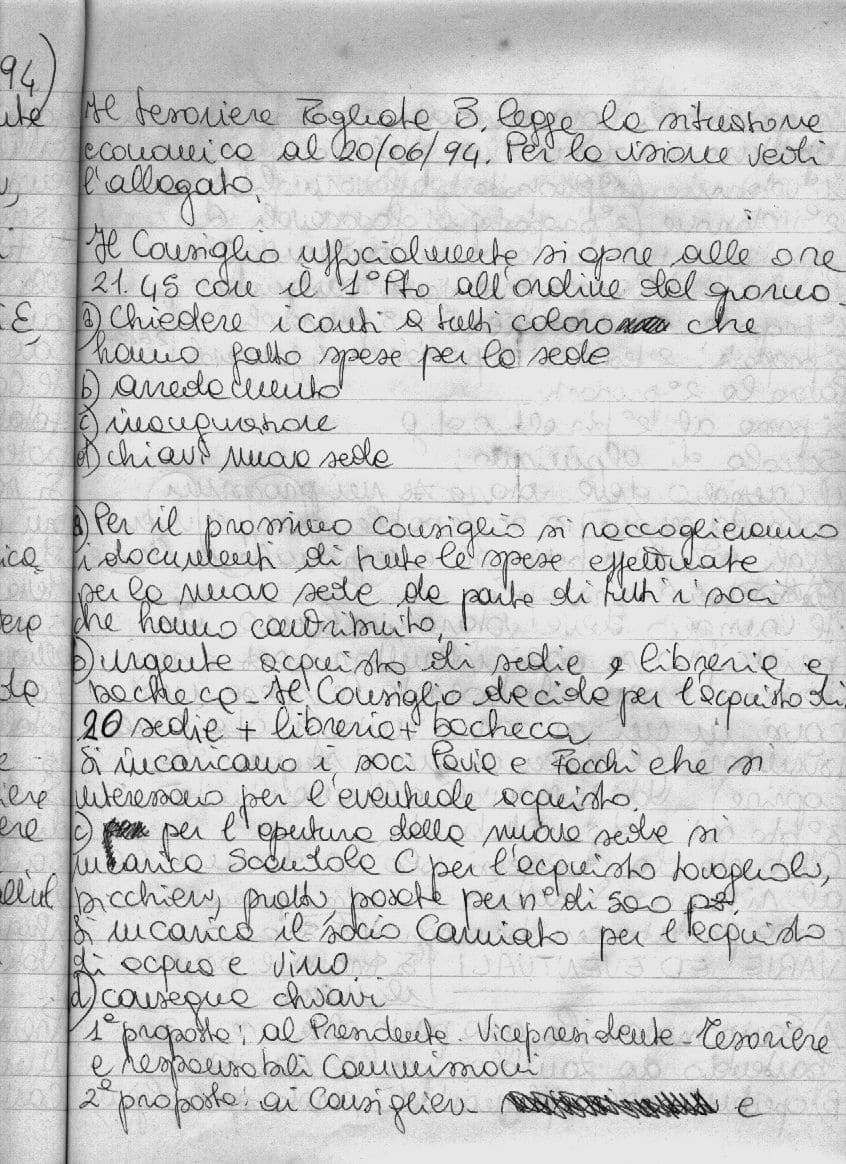 94)
Il tesoriere Tagliate B. legge la situazione
economica al 20/06/94. Per la visione vedi
l'allegato.
Il Consiglio ufficialmente si apre alle ore
21.45 con il 1° Pto all'ordine del giorno.
a) Chiedere i conti a tutti coloro che
hanno fatto spese per la sede
b) arredamento
c) inaugurazione
d) chiavi nuova sede
a) Per il prossimo Consiglio si raccoglieranno
i documenti di tutte le spese effettuate
per la nuova sede da parte di tutti i soci
che hanno contribuito,
b) urgente acquisto di sedie e librerie e
bacheca - Il Consiglio decide per l'acquisto di
20 sedie + libreria + bacheca
Si incaricano i soci Pavia e Focchi che si
interessano per l'eventuale acquisto.
c) per l'apertura della nuova sede si
incarica Scantola C per l'acquisto tovaglioli,
bicchieri, piatti, posate per n° di 500 pz.
Si incarica il socio Camiato per l'acquisto
di acqua e vino
d) consegna chiavi
1° proposta: al Presidente - Vicepresidente - Tesoriere
e responsabili Commissioni
2° proposta: ai Consiglieri e